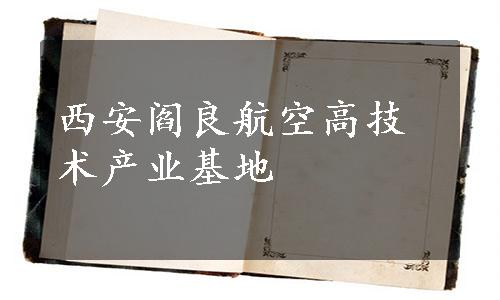 西安阎良航空高技
术产业基地